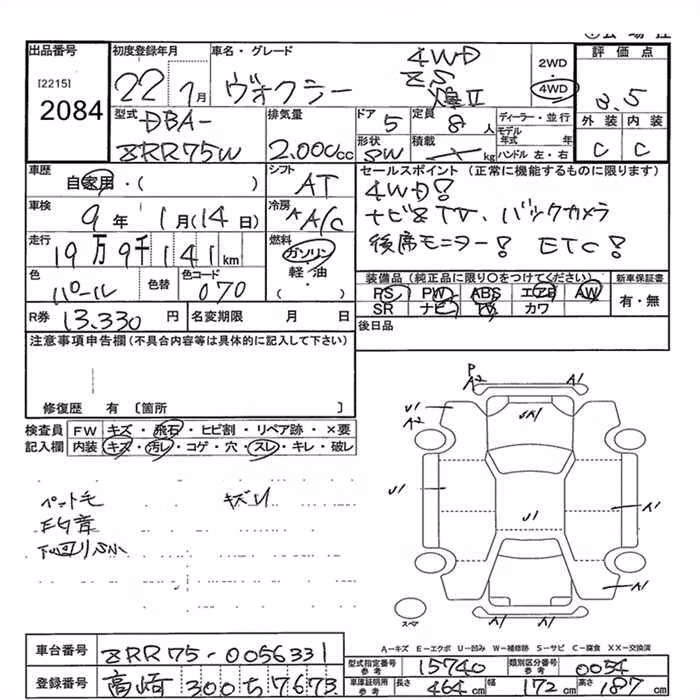 出品番号
[2215]
2084
初度登録年月
22 7月
車名・グレード
ヴォクシー
4WD
ZS
煌Ⅱ
2WD
4WD
評価点
3.5
外装 内装
C C
型式
DBA-
ZRR75W
排気量
2.000cc
ドア
5
定員
8人
形状
SW
積載
kg
ディーラー・並行
モデル年式 年
ハンドル 左・右
車歴
自家用・( )
シフト
AT
車検
9年 1月(14日)
冷房
AA/C
走行
19万9千141km
燃料
ガソリン
軽・油
( )
色
パール
色替
色コード
070
セールスポイント (正常に機能するものに限ります)
4WD!
ナビ&TV、バックカメラ
後席モニター! ETC!
装備品(純正品に限り〇をつけてください)
PS PW ABS エアB AW
SR ナビ TV カワ
新車保証書
有・無
R券 13.330円
名変期限 月 日
後日品
注意事項申告欄(不具合内容等は具体的に記入して下さい)
修復歴 有 〔箇所 〕
検査員
記入欄
FW キズ・飛石・ヒビ割・リペア跡・×要
内装 キズ・汚レ・コゲ・穴・スレ・キレ・破レ
ペット毛 キズU
EG音
下回りSM
P
A2
A1
U1
A2
UA1
U1
U1
A1
A1
A1 A1
スペア
A-キズ E-エクボ U-凹み W-補修跡 S-サビ C-腐食 XX-交換済
車台番号
ZRR75-0056331
登録番号
高崎 300 ち 7673
型式指定番号
参考
15740
類別区分番号
参考
0054
車庫証明用
参考
長さ 464cm 幅 172cm 高さ 187cm